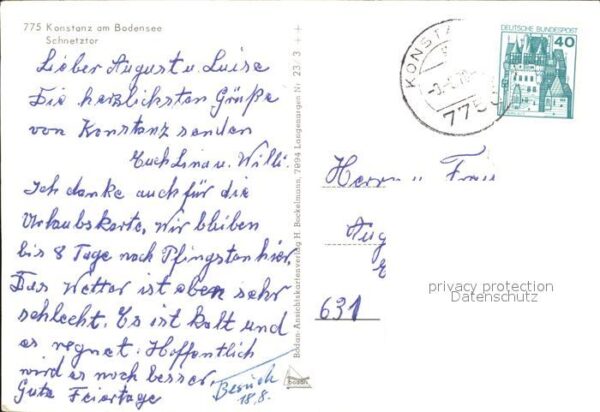 775 Konstanz am Bodensee
Schnetztor
Lieber August u. Luise
Die herzlichsten Grüße
von Konstanz senden
Euch Lina u. Willi.
Ich danke auch für die
Urlaubskarte, wir bleiben
bis 8 Tage nach Pfingsten hier,
Das Wetter ist aber sehr
schlecht. Es ist kalt und
es regnet. Hoffentlich
wird es noch besser,
Gute Feiertage
Besuch
18.8.
Bodan-Ansichtskartenverlag H. Bockelmann, 7994 Langenargen Nr. 23/3
bodan
KONSTA
775
DEUTSCHE BUNDESPOST
40
Herrn u Frau
Aug
631
privacy protection
Datenschutz